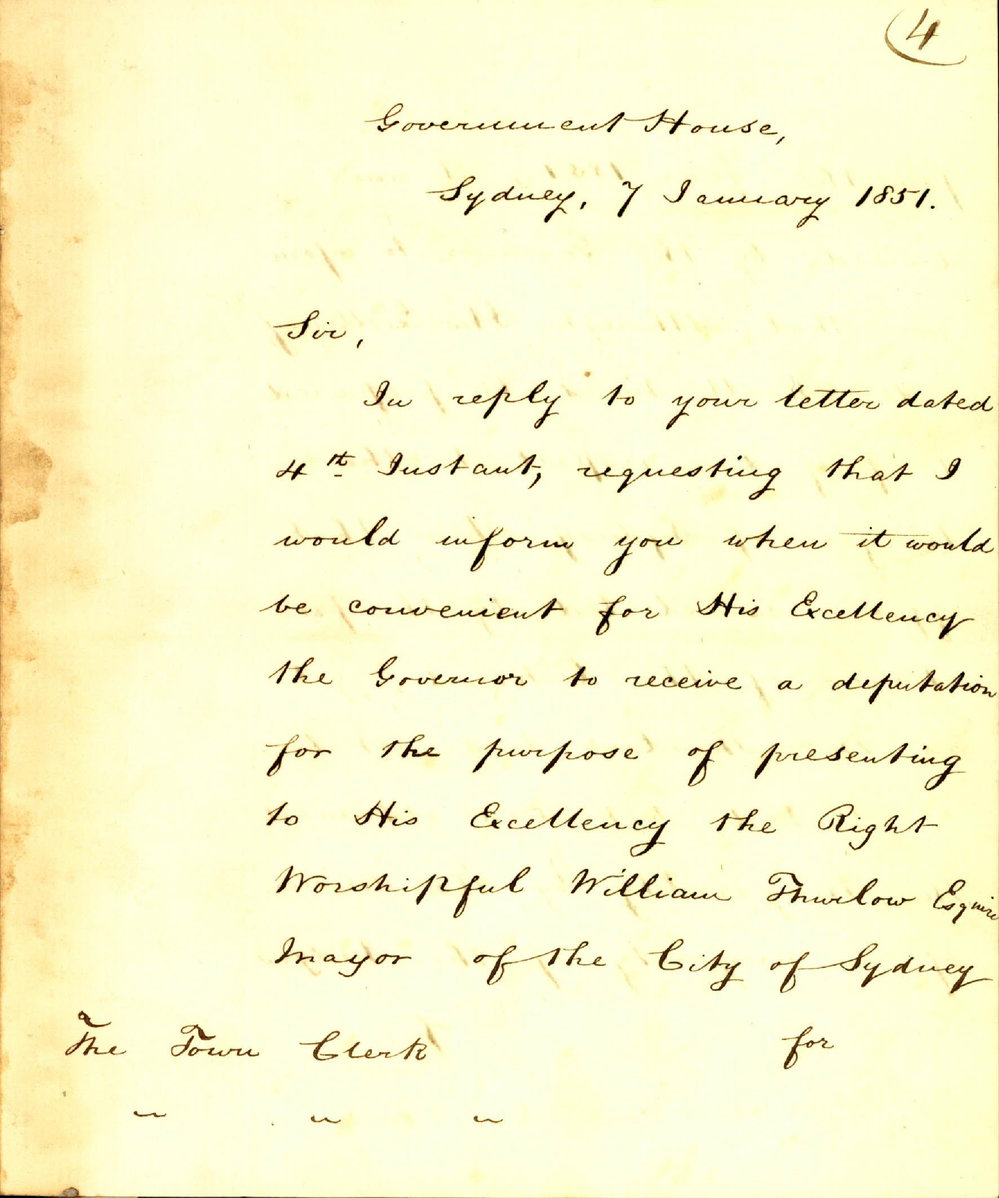 4
Government House,
Sydney, 7 January 1851.
Sir,
In reply to your letter dated
4th Instant, requesting that I
would inform you when it would
be convenient for His Excellency
the Governor to receive a deputation
for the purpose of presenting
to His Excellency the Right
Worshipful William Thurlow Esquire
Mayor of the City of Sydney
for
The Town Clerk
" " "